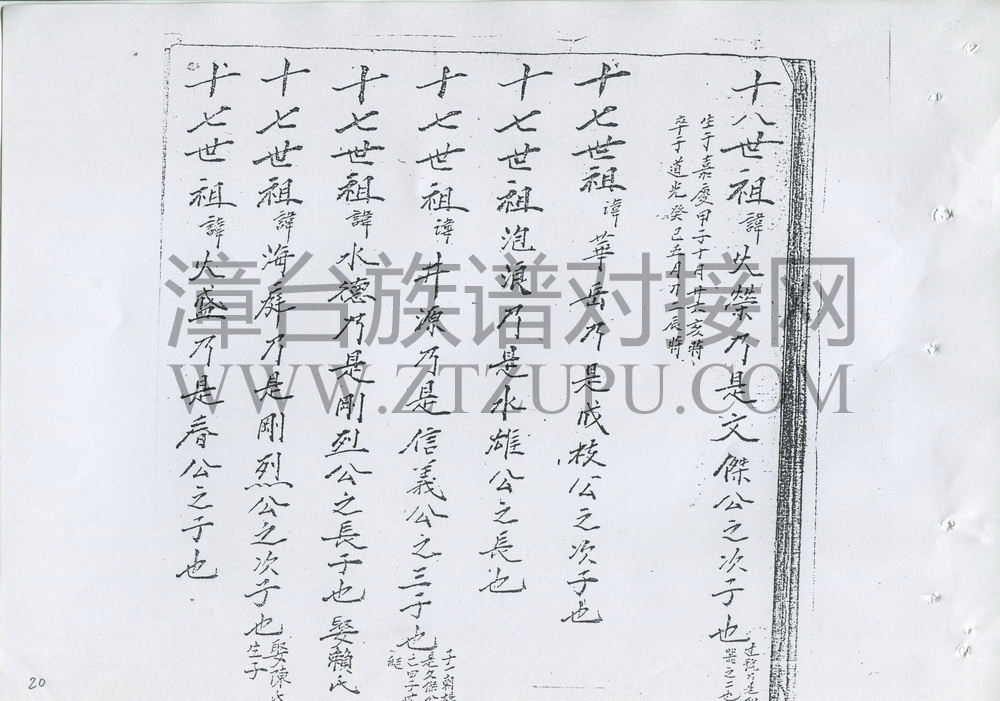 十八世祖諱火榮乃是文傑公之次子也
生于嘉慶甲子十月廿六亥時
卒于道光癸巳五月刀辰時
十七世祖諱華岳乃是成枝公之次子也
十七世祖泡浪乃是水雄公之長也
十七世祖諱井源乃是信義公之三子也
十七世祖諱水德乃是剛烈公之長子也娶賴氏
十七世祖諱海庭乃是剛烈公之次子也娶陳氏
生子
十七世祖諱火盛乃是春公之子也
漳台族谱对接网
WWW.ZTZUPU.COM
20